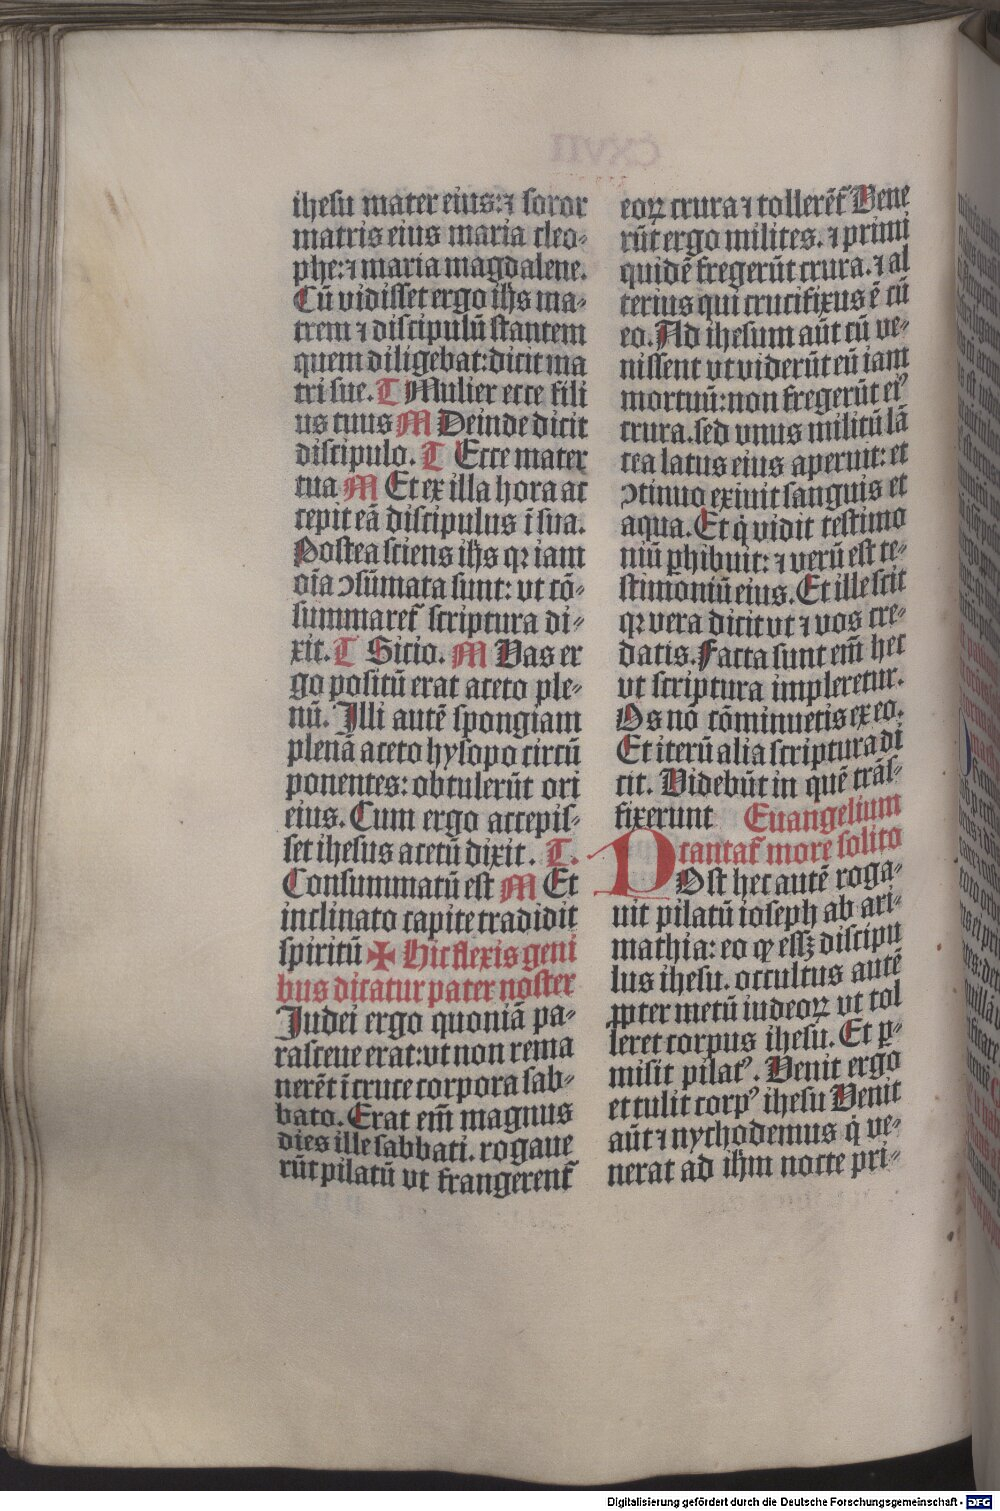 ihesu mater eius: ⁊ soror
matris eius maria cleo⸗
phe: ⁊ maria magdalene.
Cū vidisset ergo ihs ma⸗
trem ⁊ discipulū stantem
quem diligebat: dicit ma
tri sue. T Mulier ecce fili
us tuus M Deinde dicit
discipulo. T Ecce mater
tua M Et ex illa hora ac
cepit eā discipulus ī sua.
Postea sciens ihs qꝛ iam
oīa ↄsūmata sunt: vt cō⸗
summaret᷑ scriptura di⸗
xit. T Sicio. M Vas er
go positū erat aceto ple⸗
nū. Illi autē spongiam
plenā aceto hysopo circū
ponentes: obtulerūt ori
eius. Cum ergo accepis⸗
set ihesus acetū dixit. T.
Consummatū est M Et
inclinato capite tradidit
spiritū ✠ Hic flexis geni
bus dicatur pater noster
Judei ergo quoniā pa⸗
rasceue erat: vt non rema
nerēt ī cruce corpora sab⸗
bato. Erat em̄ magnus
dies ille sabbati. rogaue
rūt pilatū vt frangerent᷑
eoꝝ crura ⁊ tollerēt᷑ Vene
rūt ergo milites. ⁊ primi
quidē fregerūt crura. ⁊ al
terius qui crucifixus ē cū
eo. Ad ihesum aūt cū ve⸗
nissent vt viderūt eū iam
mortuū: non fregerūt eiꝰ
crura. sed vnus militū lā
cea latus eius aperuit: et
ↄtinuo exiuit sanguis et
aqua. Et q̇ vidit testimo
niū ꝑhibuit: ⁊ verū est te⸗
stimoniū eius. Et ille scit
qꝛ vera dicit vt ⁊ vos cre⸗
datis. Facta sunt em̄ hec
vt scriptura impleretur.
Os nō cōminuetis ex eo.
Et iterū alia scriptura di
cit. Videbūt in quē trās⸗
fixerunt Euangelium
ctantat᷑ more solito
POst hec autē roga⸗
uit pilatū ioseph ab ari⸗
mathia: eo ꝙ esſꝫ discipu
lus ihesu. occultus autē
ꝓpter metū iudeoꝝ vt tol
leret corpus ihesu. Et ꝑ⸗
misit pilatꝰ. Venit ergo
et tulit corpꝰ ihesu Venit
aūt ⁊ nychodemus q̇ ve⸗
nerat ad ihm̄ nocte pri⸗
Digitalisierung gefördert durch die Deutsche Forschungsgemeinschaft - DFG